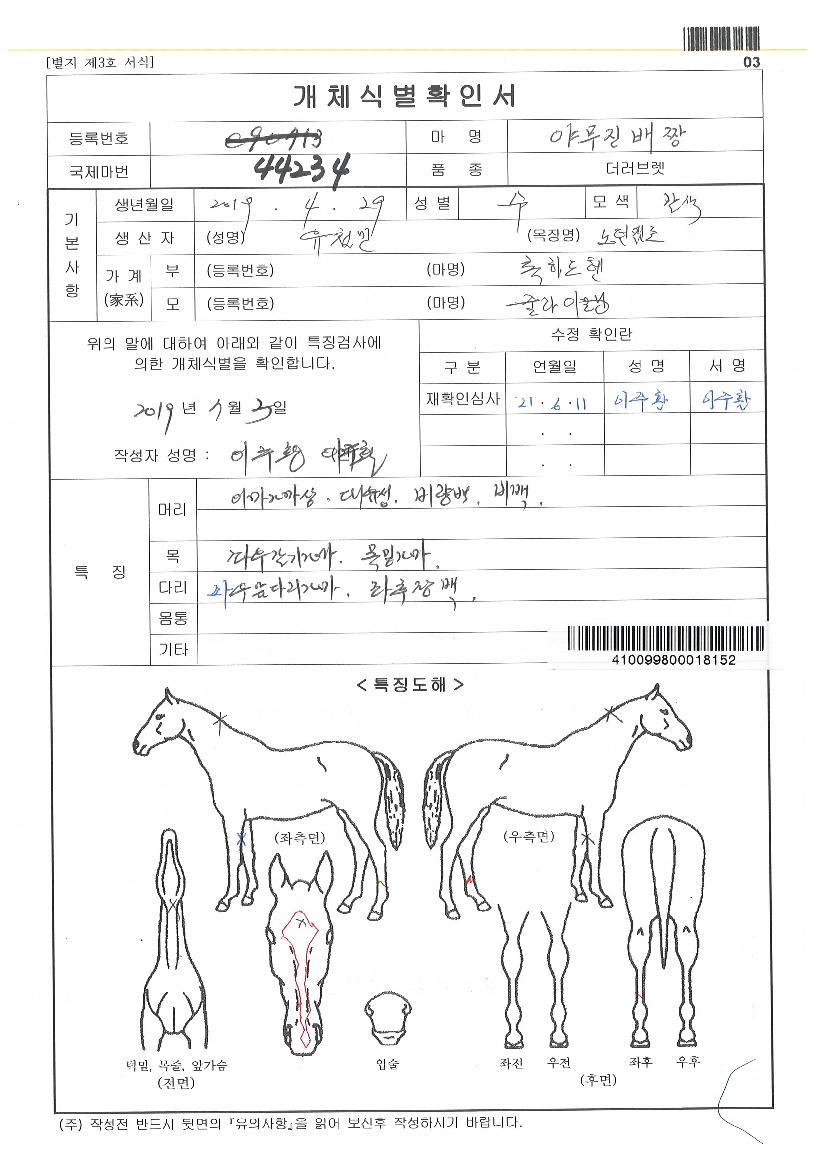 [별지 제3호 서식]
03
개체식별확인서
등록번호 090713 마 명 야무진배짱
국제마번 44234 품 종 더러브렛
기본사항
생년월일 2019 . 4 . 29 성 별 수 모 색 갈색
생 산 자 (성명) (목장명)
가 계 (家系) 부 (등록번호) (마명) 록하드텐
모 (등록번호) (마명)
위의 말에 대하여 아래와 같이 특징검사에
의한 개체식별을 확인합니다.
2019 년 월 3일
작성자 성명 : 이주환
수정 확인란
구 분 언월일 성 명 서 명
재확인심사 '21 . 6 . 11 이주환 이주환
. .
. .
특 징
머리 이마가마상 . 대유성 . 비량백 . 비백 .
목 좌우갈기가마 . 목밑가마 .
다리 좌우앞다리가마 . 좌후장백 .
몸통
기타
410099800018152
< 특징도해 >
(좌측면) (우측면)
턱밑, 목줄, 앞가슴
(전면)
입술
좌전 우전 좌후 우후
(후면)
(주) 작성전 반드시 뒷면의 『유의사항』을 읽어 보신후 작성하시기 바랍니다.